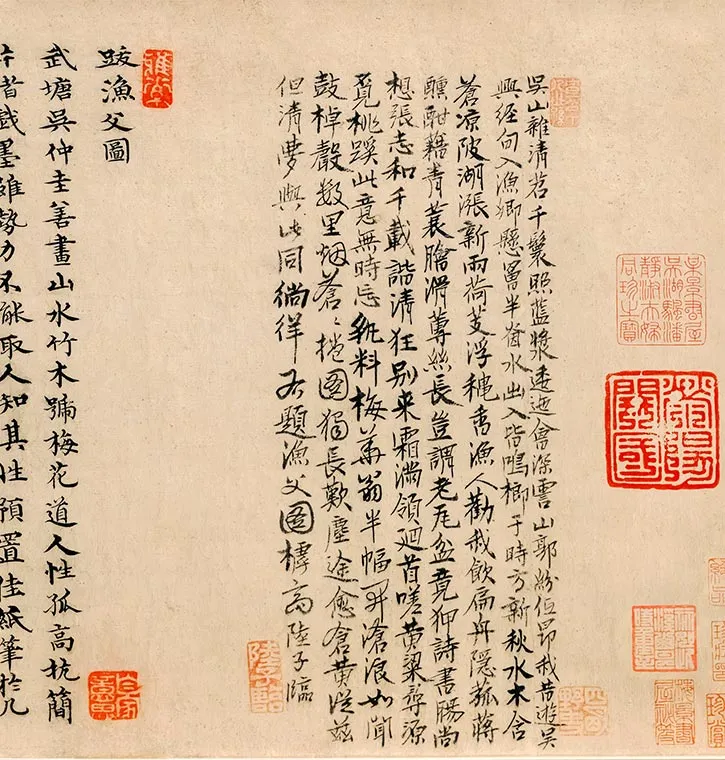 吳山雜清苕千鬟照藍漿逶迤會深霅山郭紛低昂我昔遊吳
興經旬入漁鄉懸罾半水出入皆鳴榔于時方新秋水木含
蒼凉陂湖漲新雨荷芰浮穠香漁人勸我飲扁舟隱菰蔣
醺酣藉青蓑膾滑蓴絲長豈謂老瓦盆竟抑詩書腸尚
想張志和千載諧清狂别来霜滿領廻首嗟黄粱尋源
覓桃蹊此意無時忘孰料梅華翁半幅開滄浪如聞
鼓棹聲数里烟蒼〻捲圖獨長歎塵途愈倉黄從兹
但清夢與此同徜徉右題漁父圖樗高陸子臨
跋漁父圖
武塘吳仲圭善畫山水竹木號梅花道人性孤高抗簡
者戲墨雖勢力不能取人知其性預置佳紙筆於几
滎陽開國